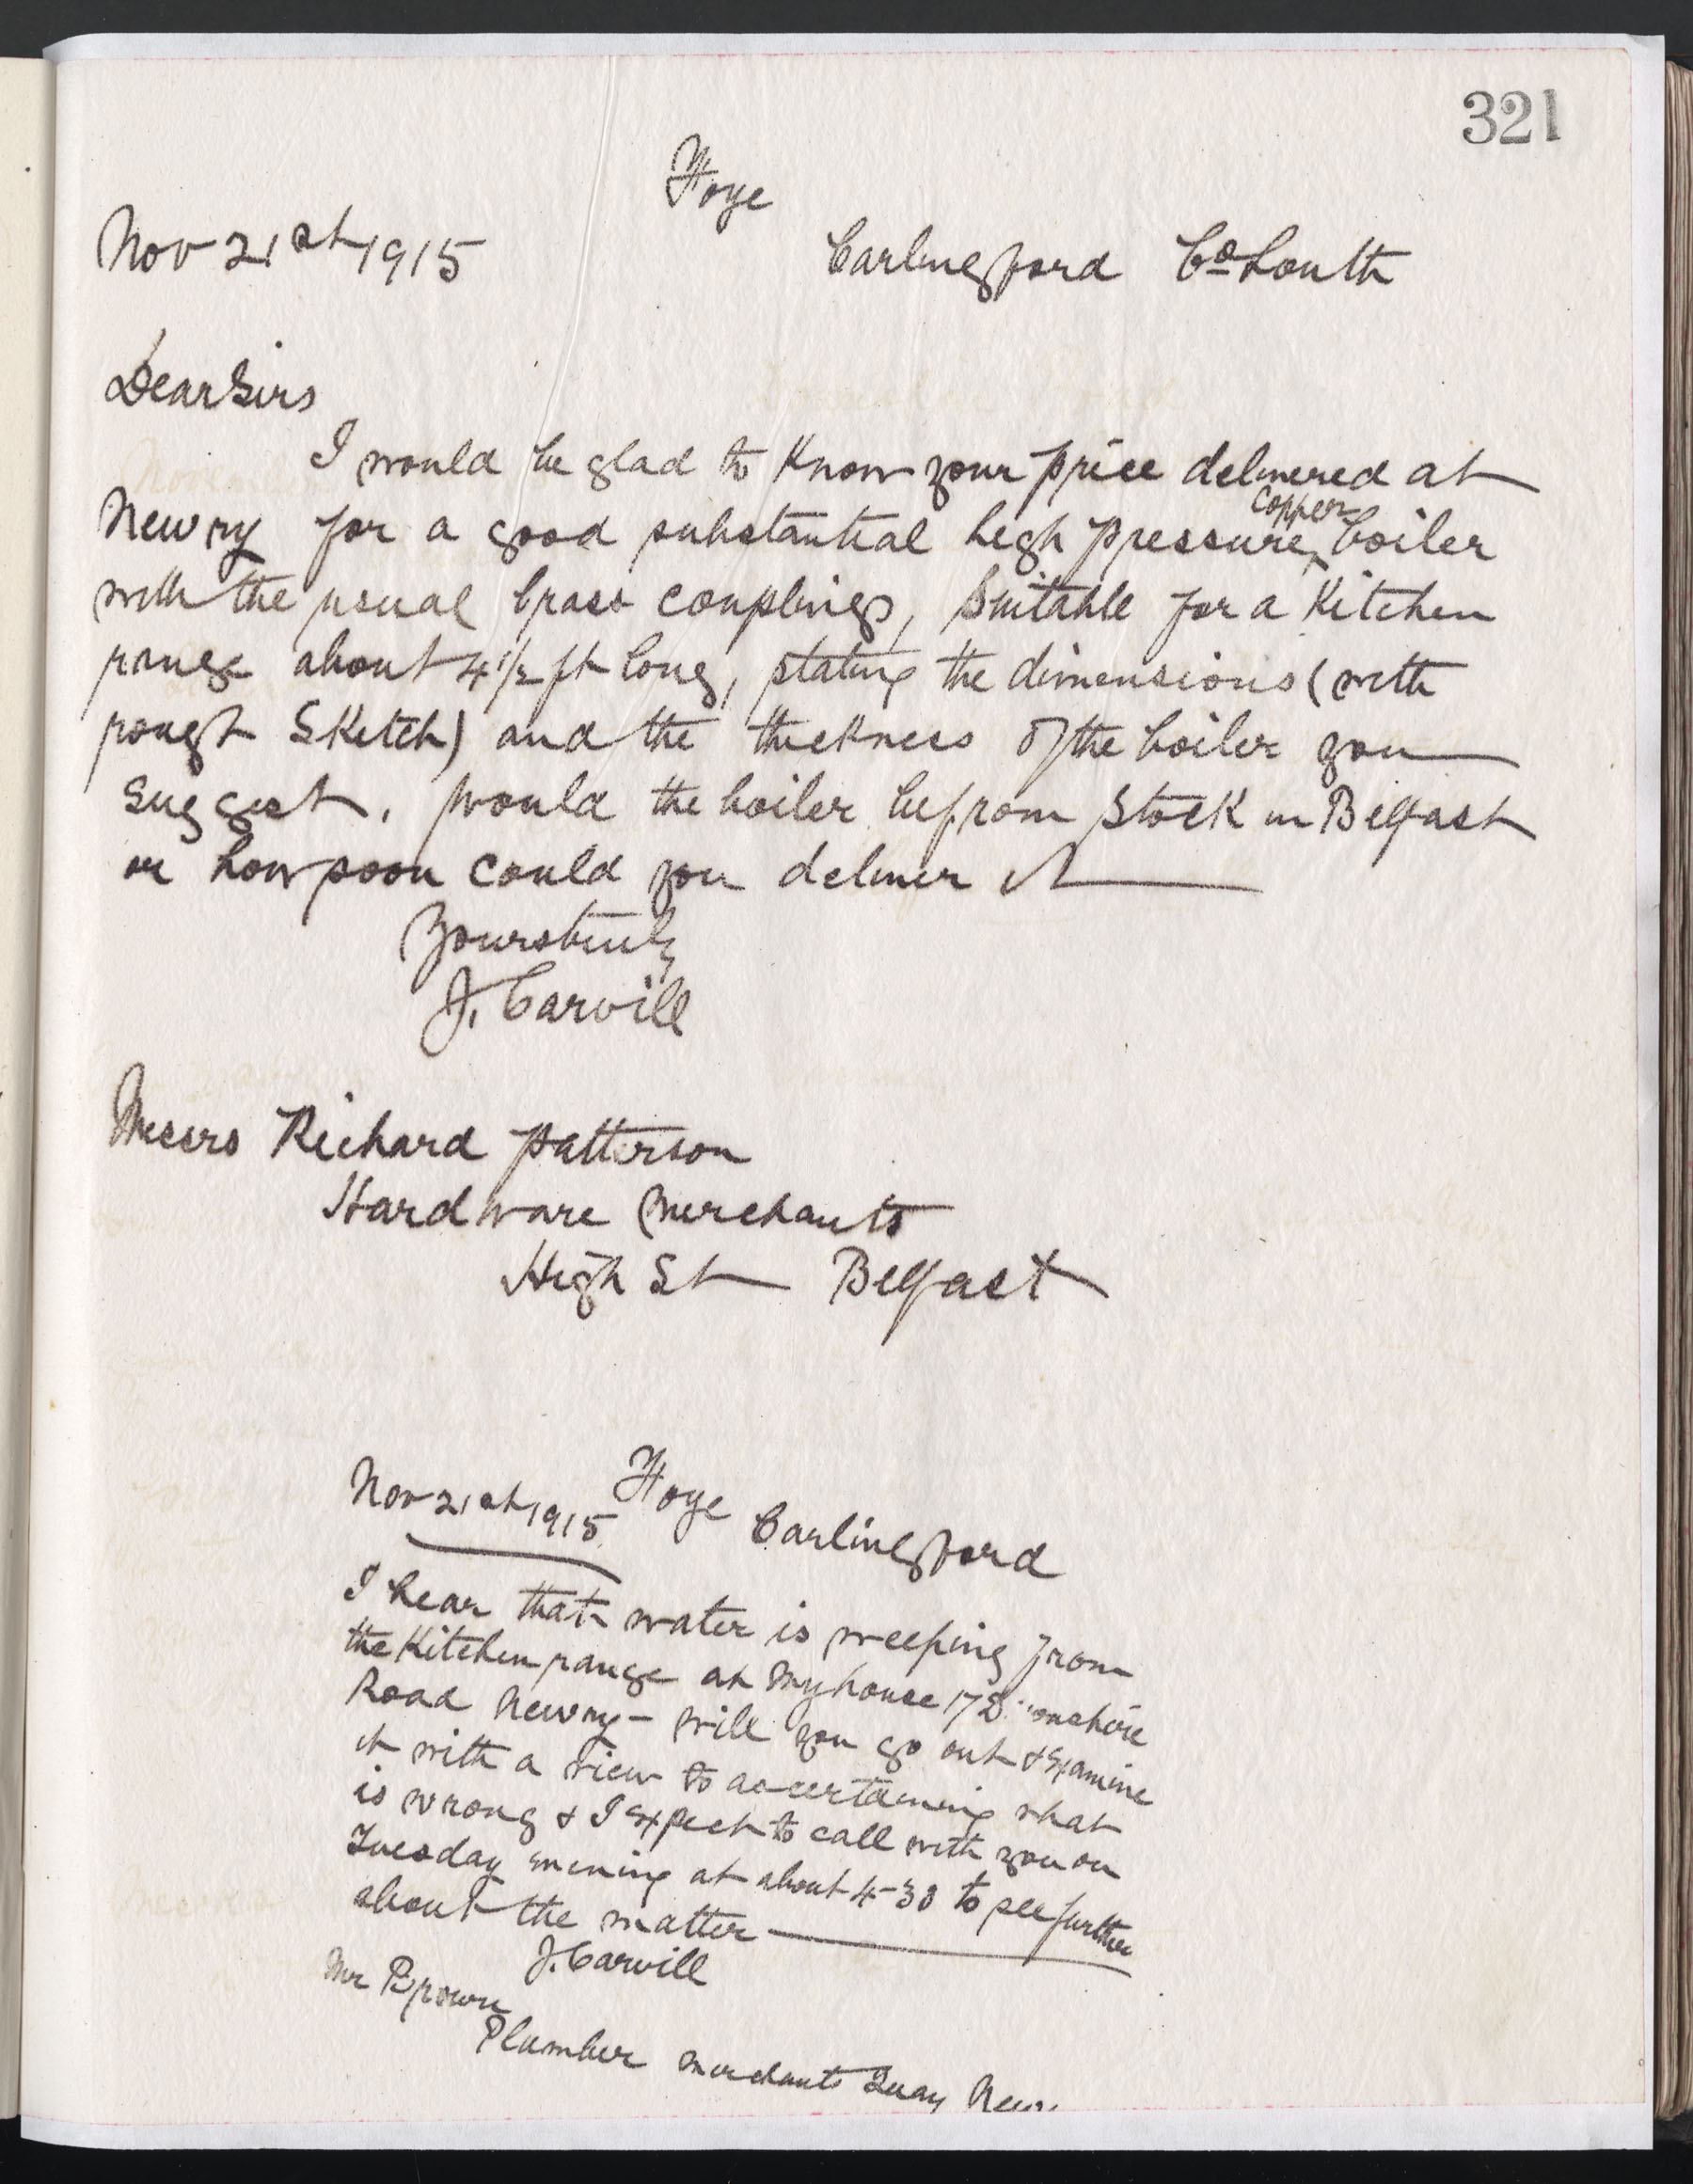 321
Foye
Nov 21st 1915 Carlingford Co Louth
Dear Sirs
I would be glad to know your price delivered at
Newry for a good substantial high pressure copper boiler
with the usual brass couplings, suitable for a Kitchen
range about 4½ ft long, stating the dimensions (with
rough Sketch) and the thickness of the boiler you
suggest. Would the boiler be from Stock in Belfast
or how soon could you deliver it
Yours truly
J. Carvill
Messrs Richard Patterson
Hardware Merchants
High St Belfast
Nov 21st 1915 Foye Carlingford
I hear that water is weeping from
the Kitchen range at my house 17
Road Newry - will you go out & Examine
it with a view to ascertaining what
is wrong & I Expect to call with you on
Tuesday evening at about 4-30 to see further
about the matter
J. Carvill
Mr Brown
Plumber Merchants Quay